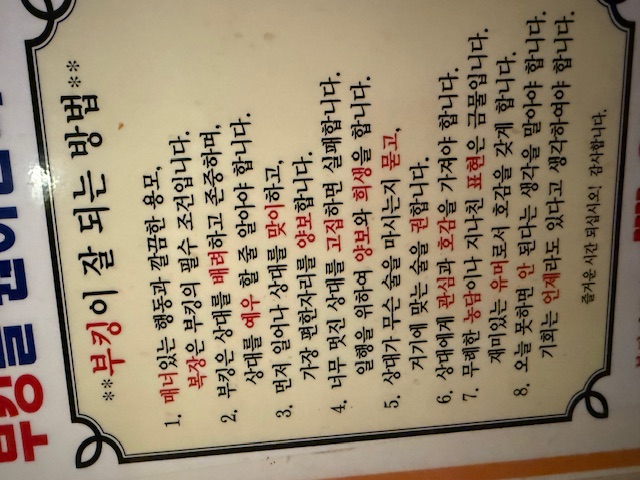 **부킹이 잘 되는 방법**
1. 매너있는 행동과 깔끔한 용모,
복장은 부킹의 필수 조건입니다.
2. 부킹은 상대를 배려하고 존중하며,
상대를 예우 할 줄 알아야 합니다.
3. 먼저 일어나 상대를 맞이하고,
가장 편한자리를 양보합니다.
4. 너무 멋진 상대를 고집하면 실패합니다.
일행을 위하여 양보와 희생을 합니다.
5. 상대가 무슨 술을 마시는지 묻고,
거기에 맞는 술을 권합니다.
6. 상대에게 관심과 호감을 가져야 합니다.
7. 무례한 농담이나 지나친 표현은 금물입니다.
재미있는 유머로서 호감을 갖게 합니다.
8. 오늘 못하면 안 된다는 생각을 말아야 합니다.
기회는 언제라도 있다고 생각하여야 합니다.
즐거운 시간 되십시오! 감사합니다.